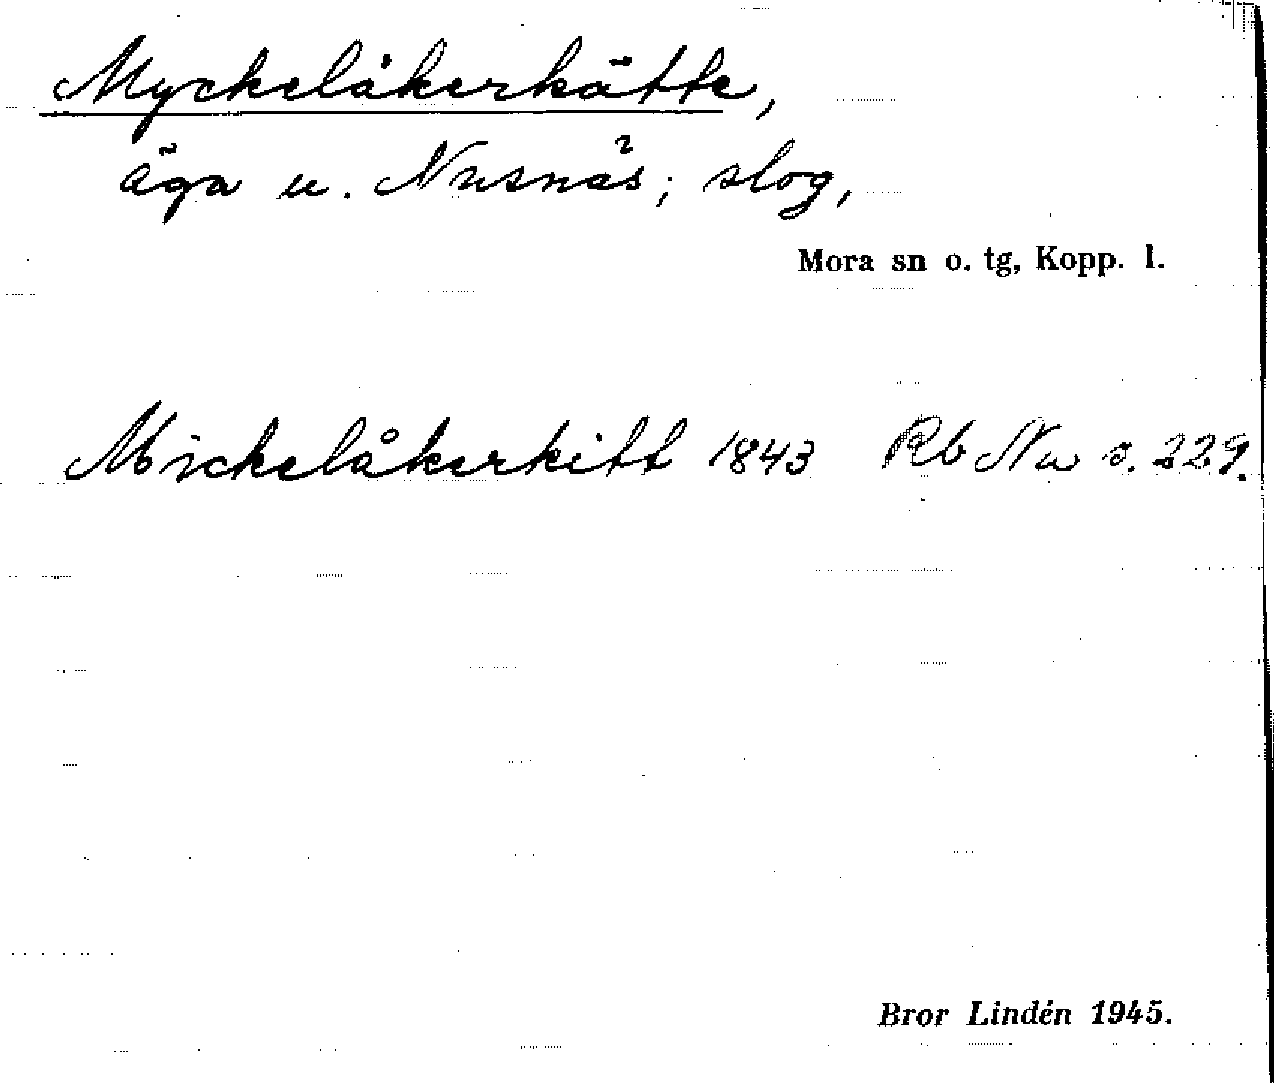 Myckelåkerkätte,
äga u. Nusnäs; slog,
Mora sn o. tg, Kopp. l.
Mickelåkerkitt 1843 Rb Nu s. 229.
Bror Lindén 1945.